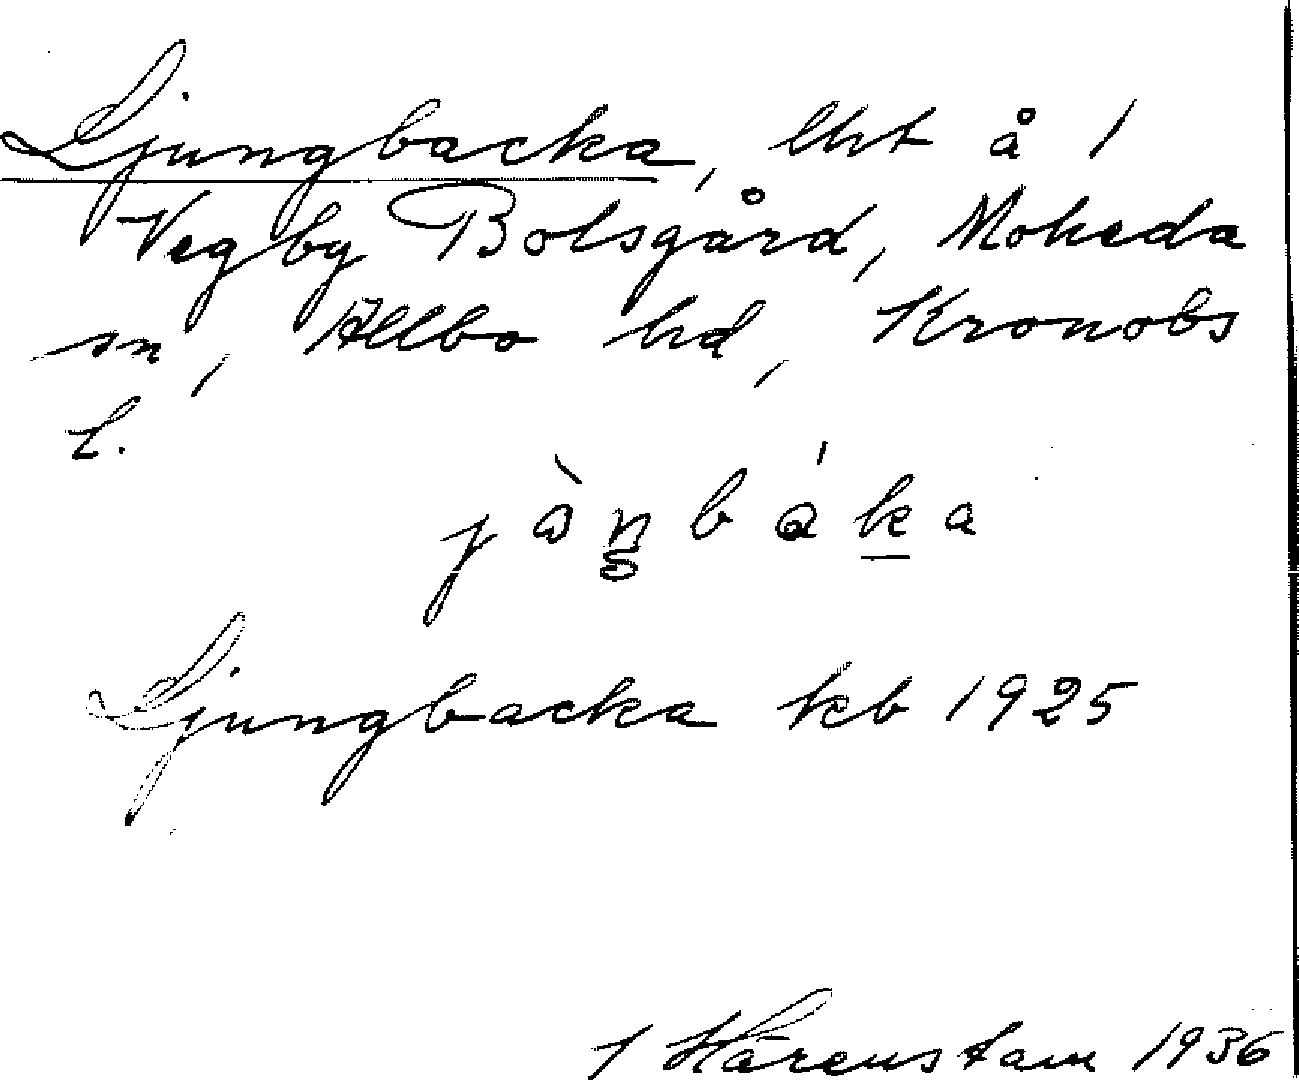 Ljungbacka, lht å 1
Vegby Bolsgård, Moheda
sn, Allbo hd, Kronobs
l.
Ljungbacka kb 1925
J Hårenstam 1936